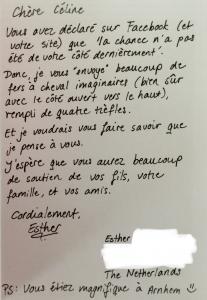 Chère Céline
Vous avez déclaré sur Facebook (et
votre site) que "la chance n'a pas
été de votre côté dernièrement".
Donc, je vous "envoye" beaucoup de
fers à cheval imaginaires (bien sûr
avec le côté ouvert vers le haut),
rempli de quatre trèfles.
Et je voudrais vous faire savoir que
je pense à vous.
J'espère que vous aurez beaucoup
de soutien de vos fils, votre
famille, et vos amis.
Cordialement,
Esther
Esther
The Netherlands
PS: Vous étiez magnifique à Arnhem